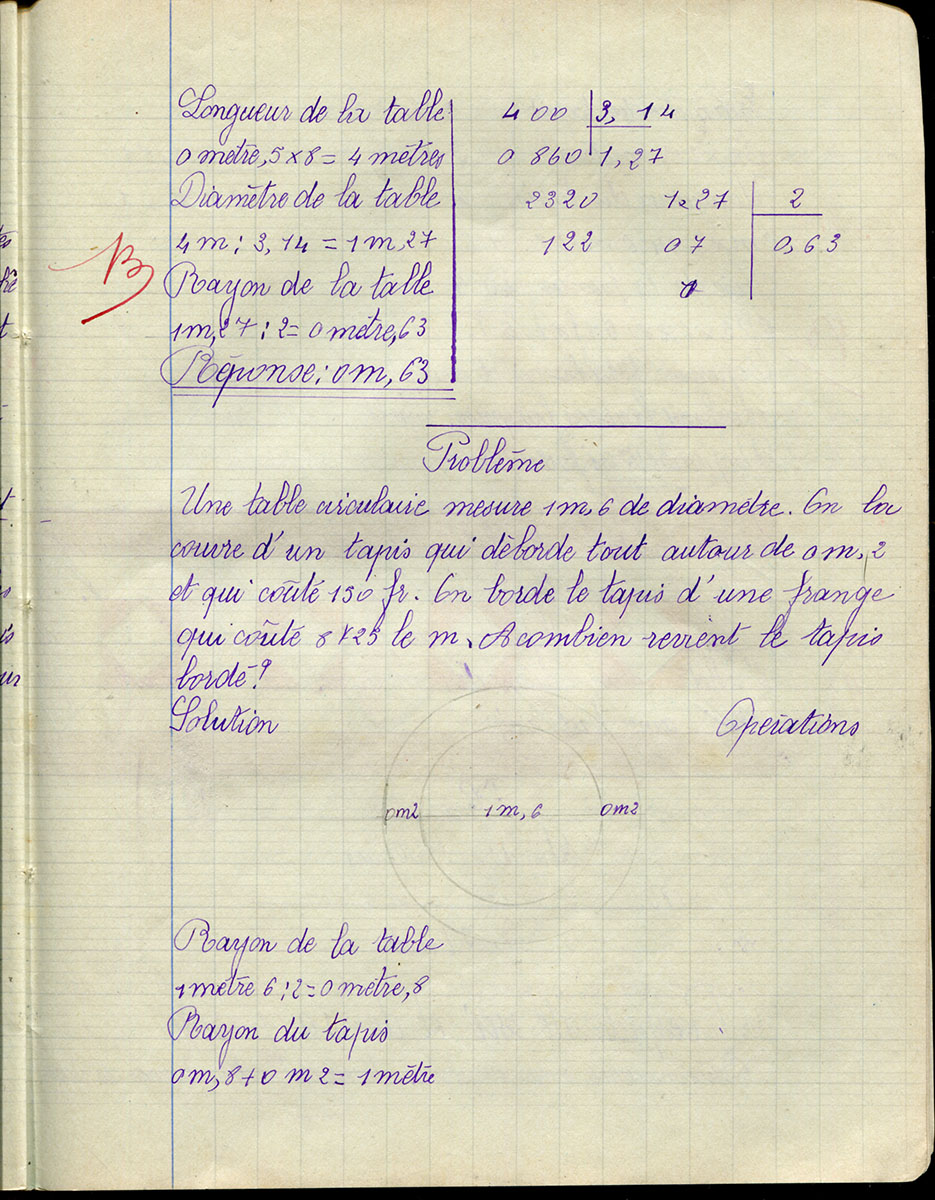 Longueur de la table
0 mètre,5 x 8 = 4 mètres
Diamètre de la table
4 m : 3,14 = 1 m,27
Rayon de la table
1 m,27 : 2 = 0 mètre,63
Réponse : 0 m,63
B
400 3,14
0 860 1,27
2320
122
1,27 2
07 0,63
Problème
Une table circulaire mesure 1 m,6 de diamètre. On la
couvre d'un tapis qui déborde tout autour de 0 m,2
et qui coûte 150 fr. On borde le tapis d'une frange
qui coûte 8 f 25 le m. A combien revient le tapis
bordé ?
Solution
Opérations
0m2 1m,6 0m2
Rayon de la table
1 mètre 6 : 2 = 0 mètre,8
Rayon du tapis
0 m,8 + 0 m 2 = 1 mètre